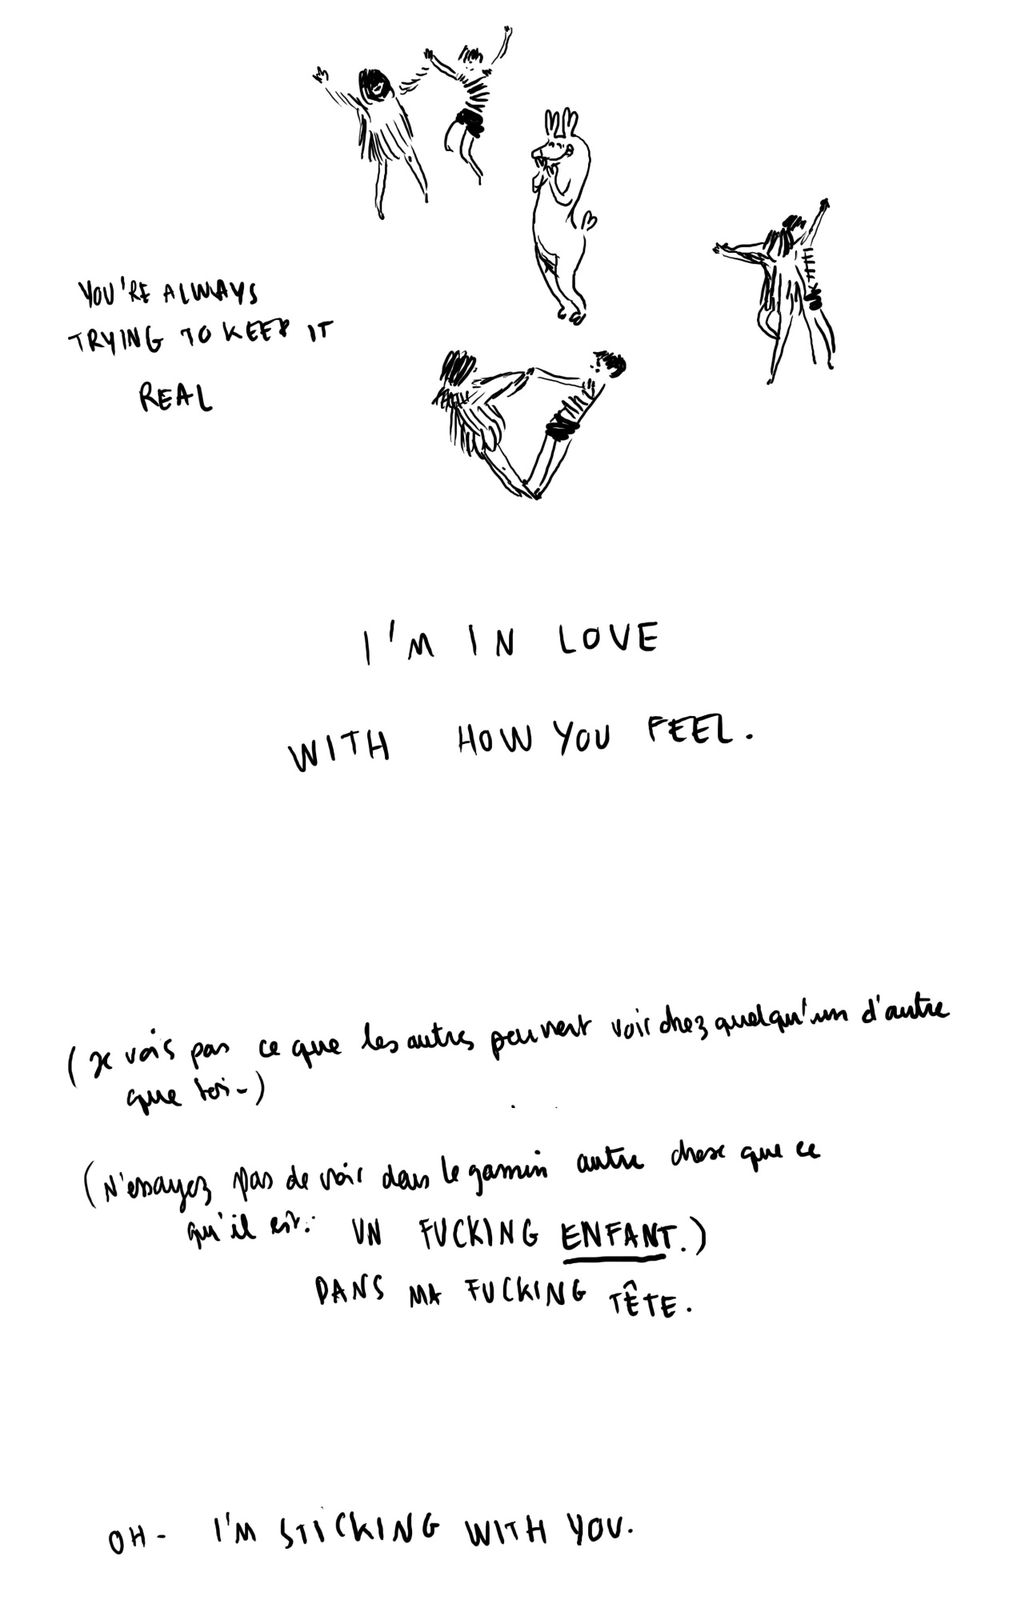 YOU'RE ALWAYS
TRYING TO KEEP IT
REAL
I'M IN LOVE
WITH HOW YOU FEEL.
(Je vois pas ce que les autres peuvent voir chez quelqu'un d'autre
que toi-)
(N'essayez pas de voir dans le gamin autre chose que ce
qu'il est: UN FUCKING ENFANT.)
DANS MA FUCKING TÊTE.
OH- I'M STICKING WITH YOU.